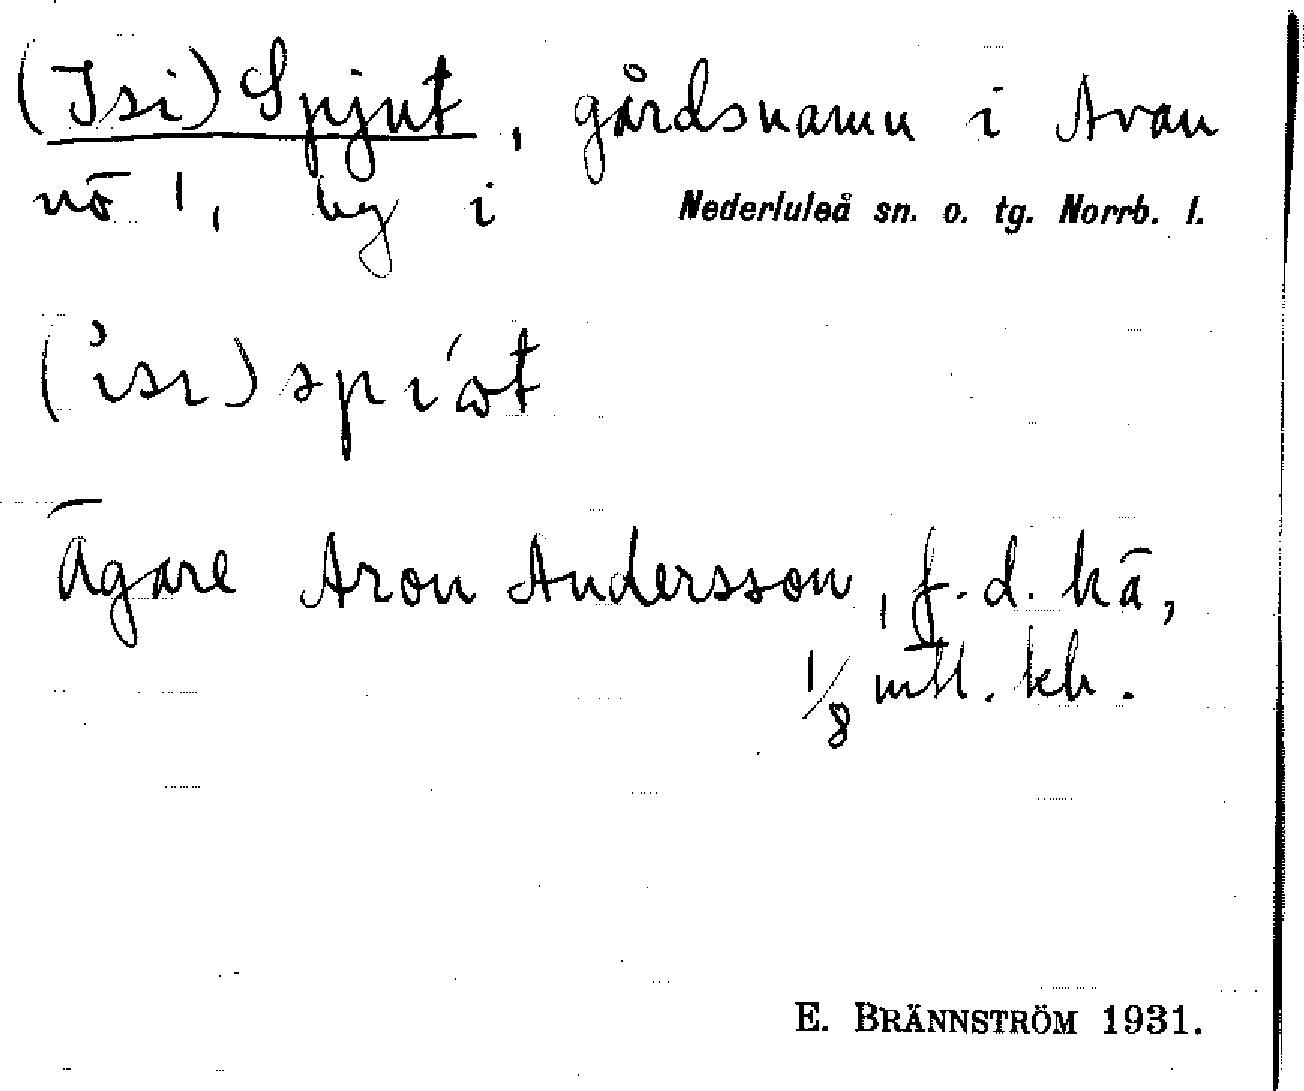 (Isi) Spjut, gårdsnamn i Avan
nō 1, by i Nederluleå sn. o. tg. Norrb. l.
Ägare Aron Andersson, f.d. hä,
1/8 mtl. kh.
E. BRÄNNSTRÖM 1931.